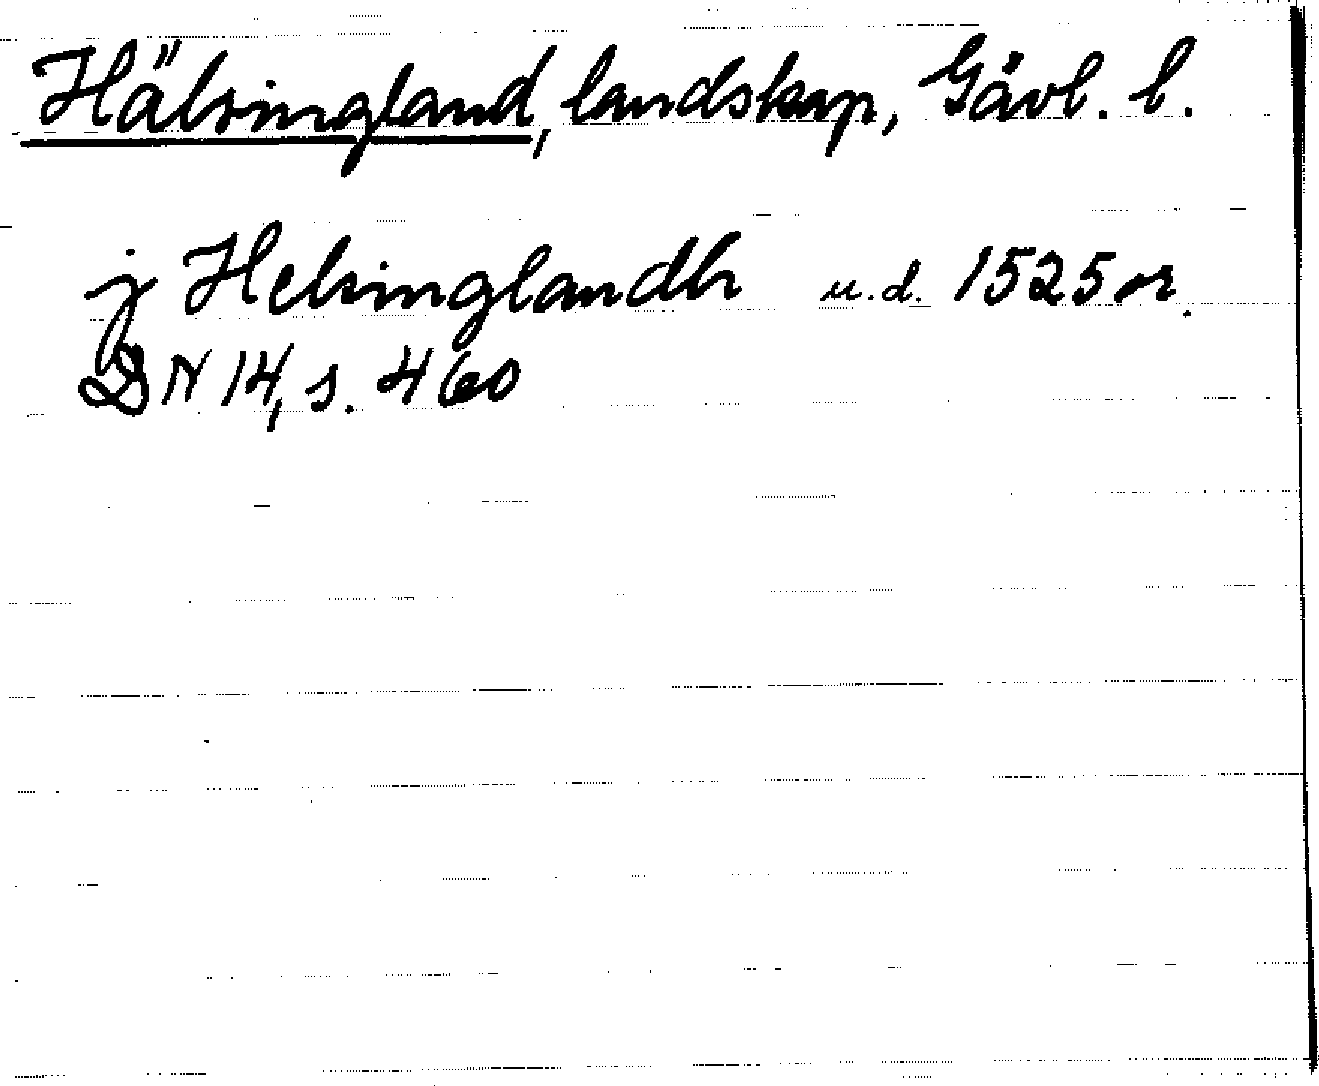 Hälsingland, landskap, Gävl. l.
j Helsinglandh u.d. 1525 or.
DN 14, s. 460